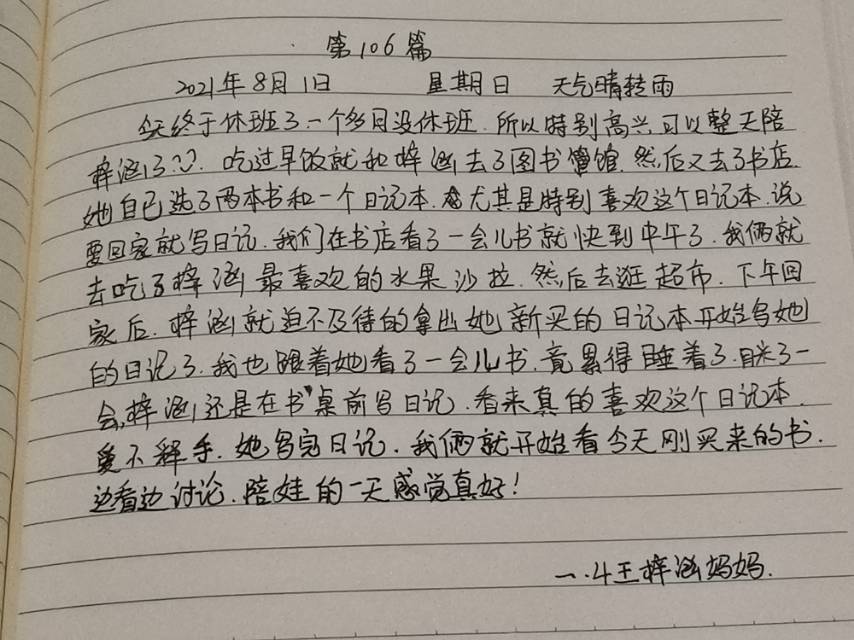 第106篇
2021年8月1日 星期日 天气晴转雨
今天终于休班了.一个多月没休班.所以特别高兴可以整天陪
梓涵了.吃过早饭就和梓涵去了图书馆.然后又去了书店
她自己选了两本书和一个日记本.尤其是特别喜欢这个日记本.说
要回家就写日记.我们在书店看了一会儿书就快到中午了.我俩就
去吃了梓涵最喜欢的水果沙拉.然后去逛超市.下午回
家后.梓涵就迫不及待的拿出她新买的日记本开始写她
的日记了.我也跟着她看了一会儿书.竟累得睡着了.眯了一
会,梓涵还是在书桌前写日记.看来真的喜欢这个日记本.
爱不释手.她写完日记.我俩就开始看今天刚买来的书.
边看边讨论.陪娃的一天感觉真好!
一.4王梓涵妈妈.